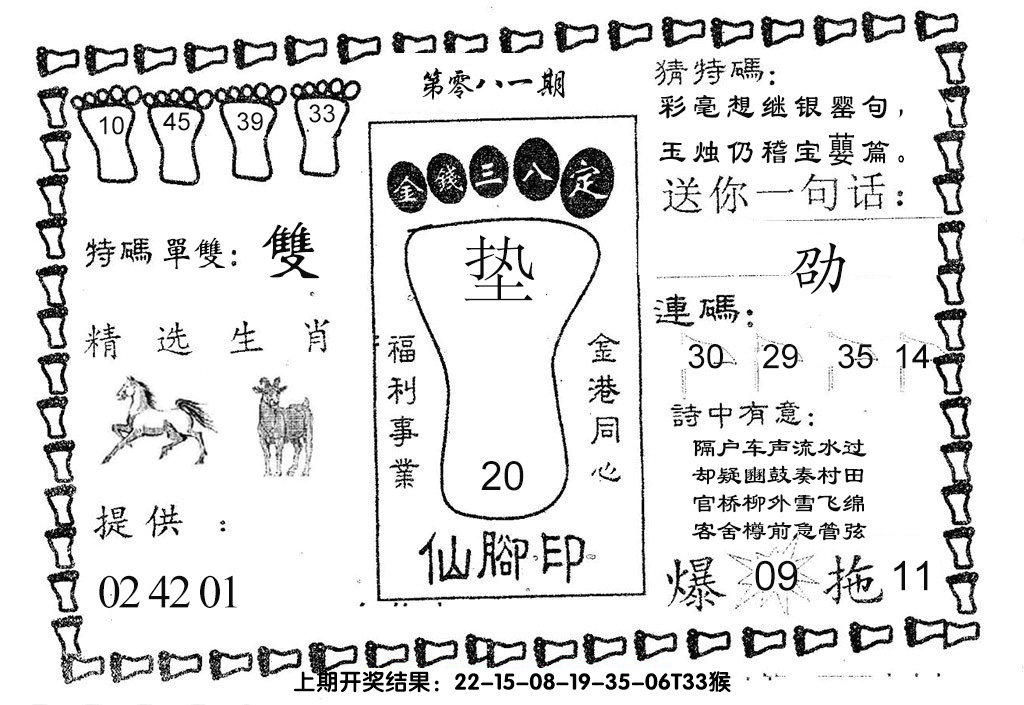 第零八一期
10 45 39 33
特碼單雙：雙
精选生肖
提供：
02 42 01
金錢三八定
垫
福利事業
金港同心
20
仙腳印
猜特碼：
彩毫想继银罂句，
玉烛仍稽宝蘡篇。
送你一句话：
劭
連碼：
30 29 35 14
詩中有意：
隔户车声流水过
却疑豳鼓奏村田
官桥柳外雪飞绵
客舍樽前急管弦
爆 09 拖 11
上期开奖结果：22-15-08-19-35-06T33猴